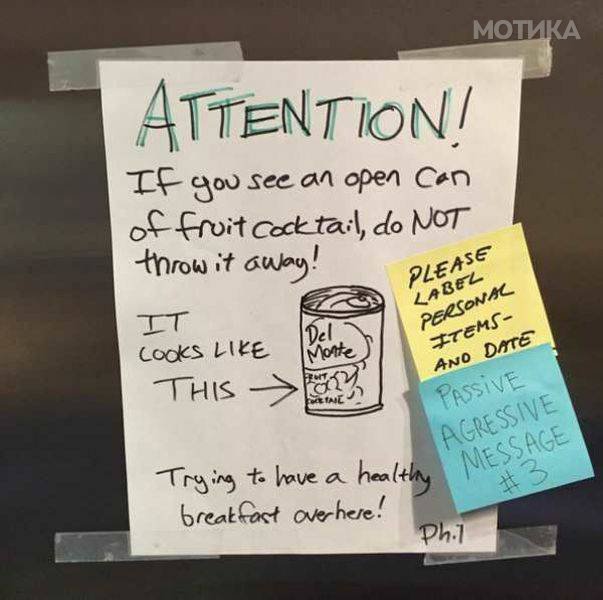 МОТИКА
ATTENTION!
If you see an open can
of fruit cocktail, do NOT
throw it away!
IT
LOOKS LIKE
THIS →
Del
Monte
FRUIT
COCKTAIL
Trying to have a healthy
breakfast over here!
Phil
PLEASE
LABEL
PERSONAL
ITEMS-
AND DATE
PASSIVE
AGRESSIVE
MESSAGE
#3